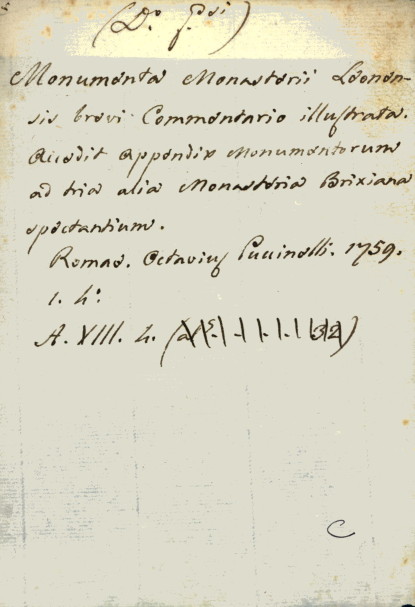 (D.° f. )
Monumenta Monasterii Leonen-
sis brevi Commentario illustrata.
Accedit Appendix Monumentorum
ad tria alia Monasteria Brixiana
spectantium.
Romae. Octavius Puccinelli. 1759.
1. 4.°
A. VIII. 4. ( 32)
C